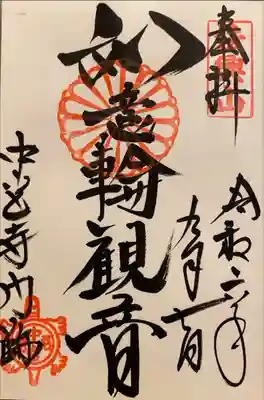 奉拝
令和二年
九月
如意輪観音
中宮寺門跡